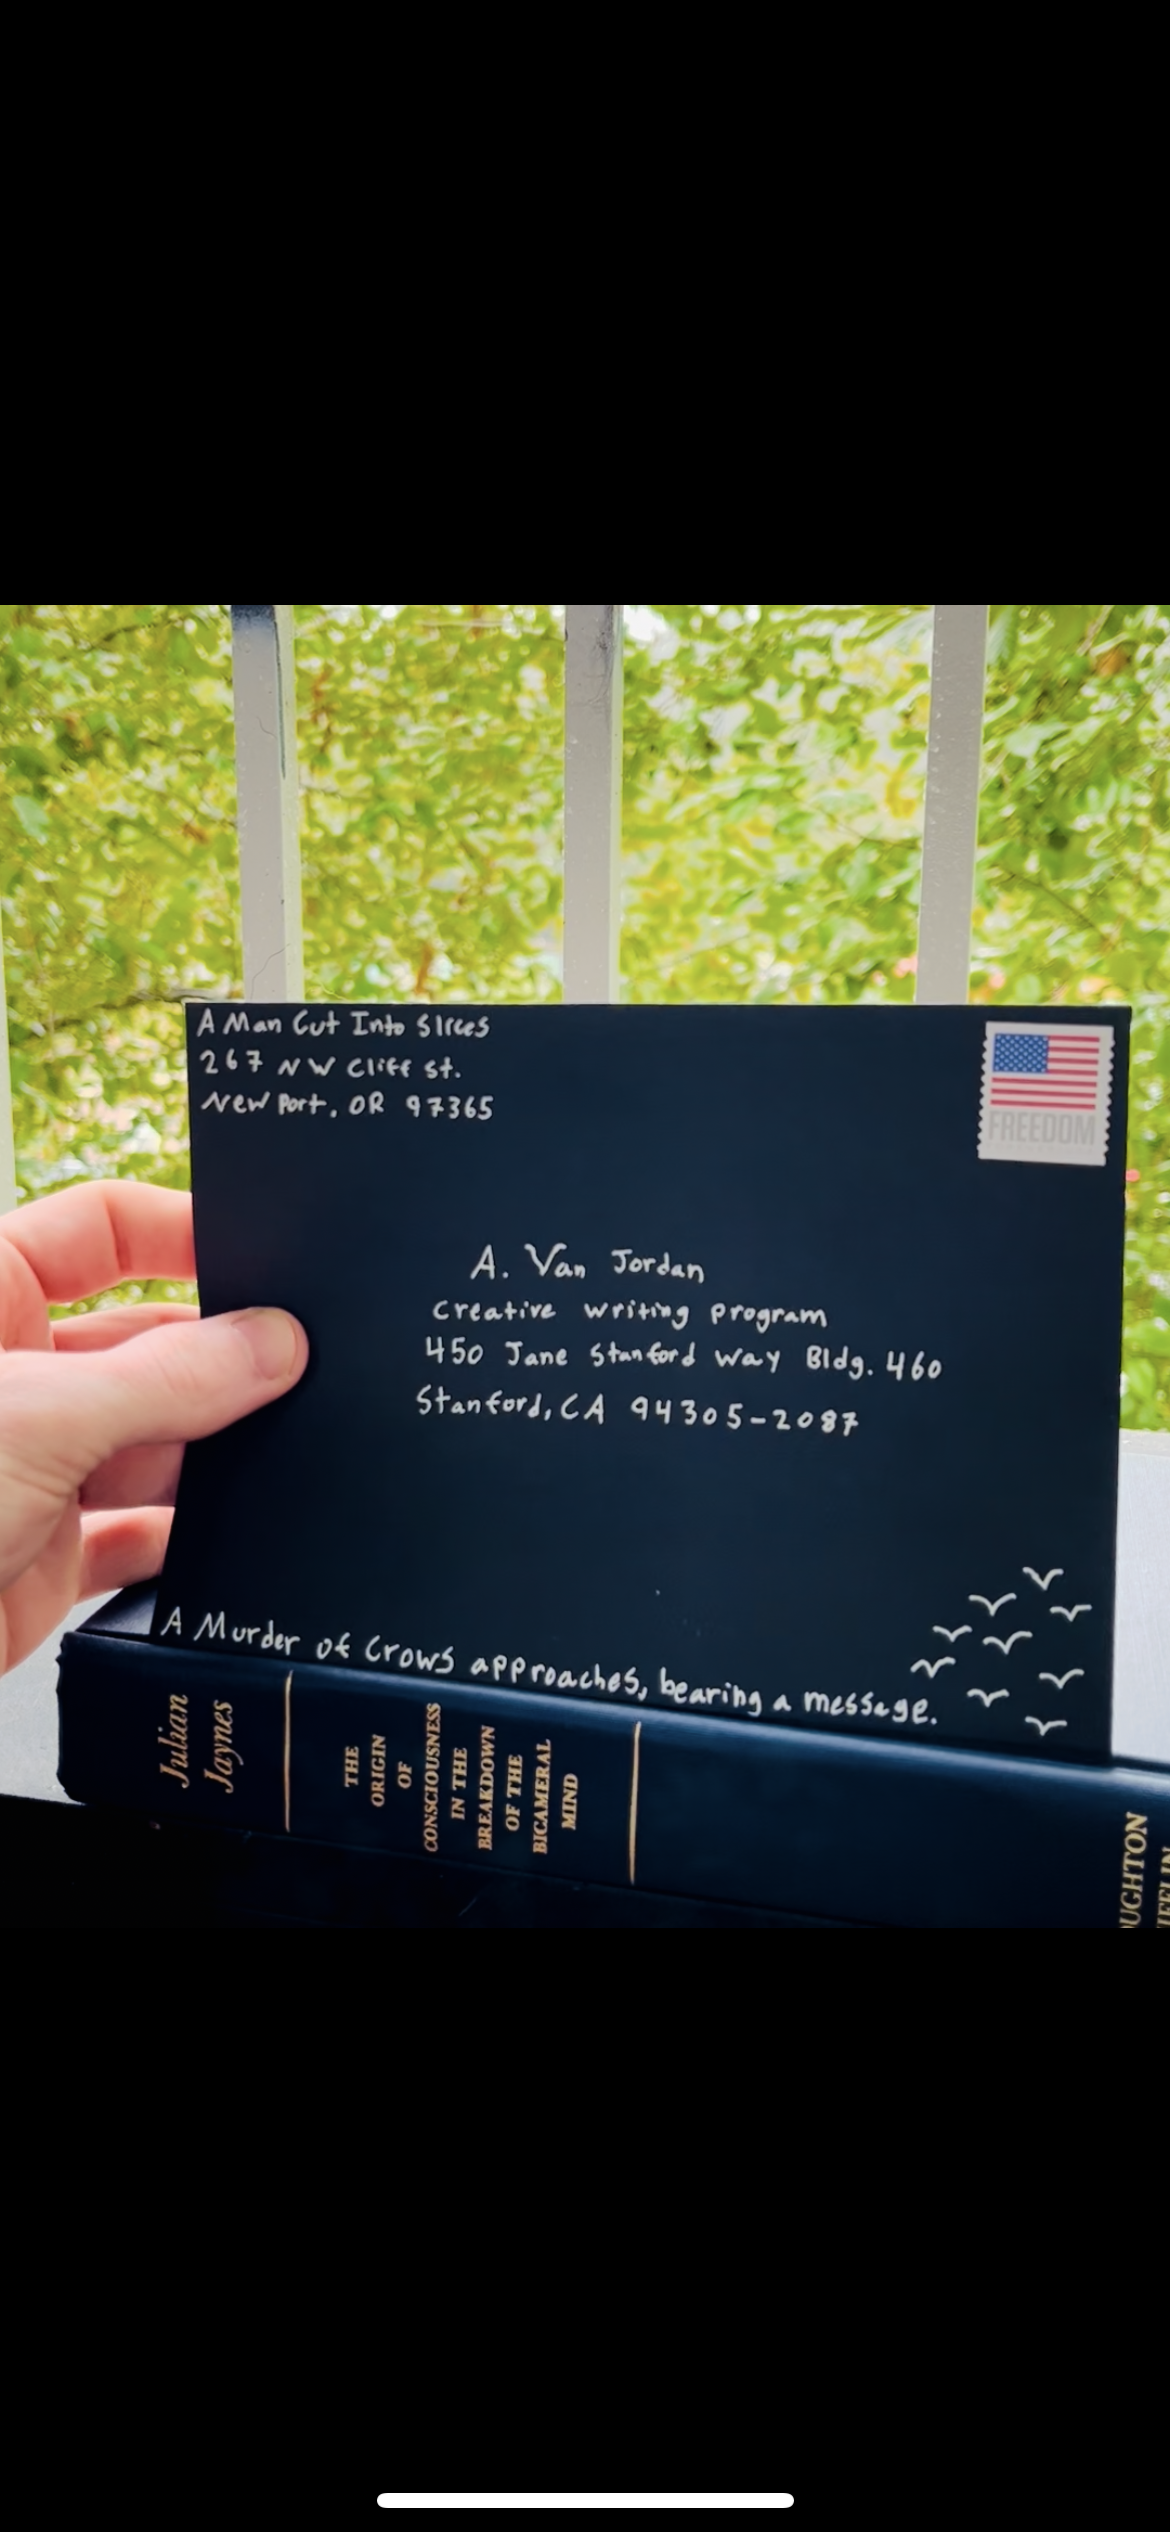 A Man Cut Into Slices
267 NW Cliff St.
New Port, OR 97365
FREEDOM
A. Van Jordan
Creative Writing Program
450 Jane Stanford Way Bldg. 460
Stanford, CA 94305-2087
A Murder of Crows approaches, bearing a message.
Julian
Jaynes
THE
ORIGIN
OF
CONSCIOUSNESS
IN THE
BREAKDOWN
OF THE
BICAMERAL
MIND
OUGHTON